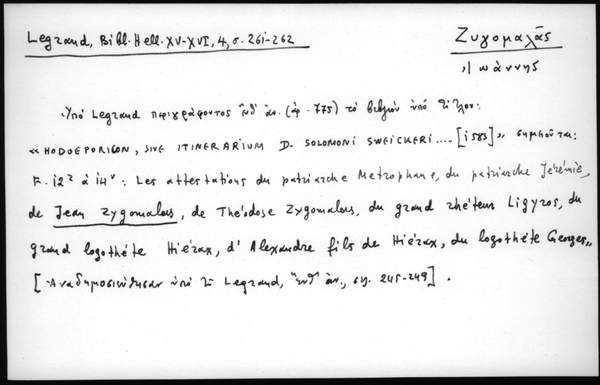 Legrand, Bibl. Hell. XV-XVI, 4, σ. 261-262
Ζυγομαλᾶς
Ἰωάννης
Ὑπό Legrand περιγράφοντος ἔνθ' ἀν. (ἀρ. 775) τό βιβλίον ὑπό τίτλον:
« HODOEPORICON, SIVE ITINERARIUM D. SOLOMONI SWEICKERI.... [1583] » σημειοῦται:
F. 12ʳ à 14ᵛ: Les attestations du patriarche Metrophane, du patriarche Jérémie,
de Jean Zygomalas, de Théodose Zygomalas, du grand rhéteur Ligyros, du
grand logothéte Hiérax, d'Alexandre fils de Hiérax, du logothéte Georges„
[Ἀναδημοσιεύθησαν ὑπό τοῦ Legrand, ἔνθ' ἀν., σς. 245-249].